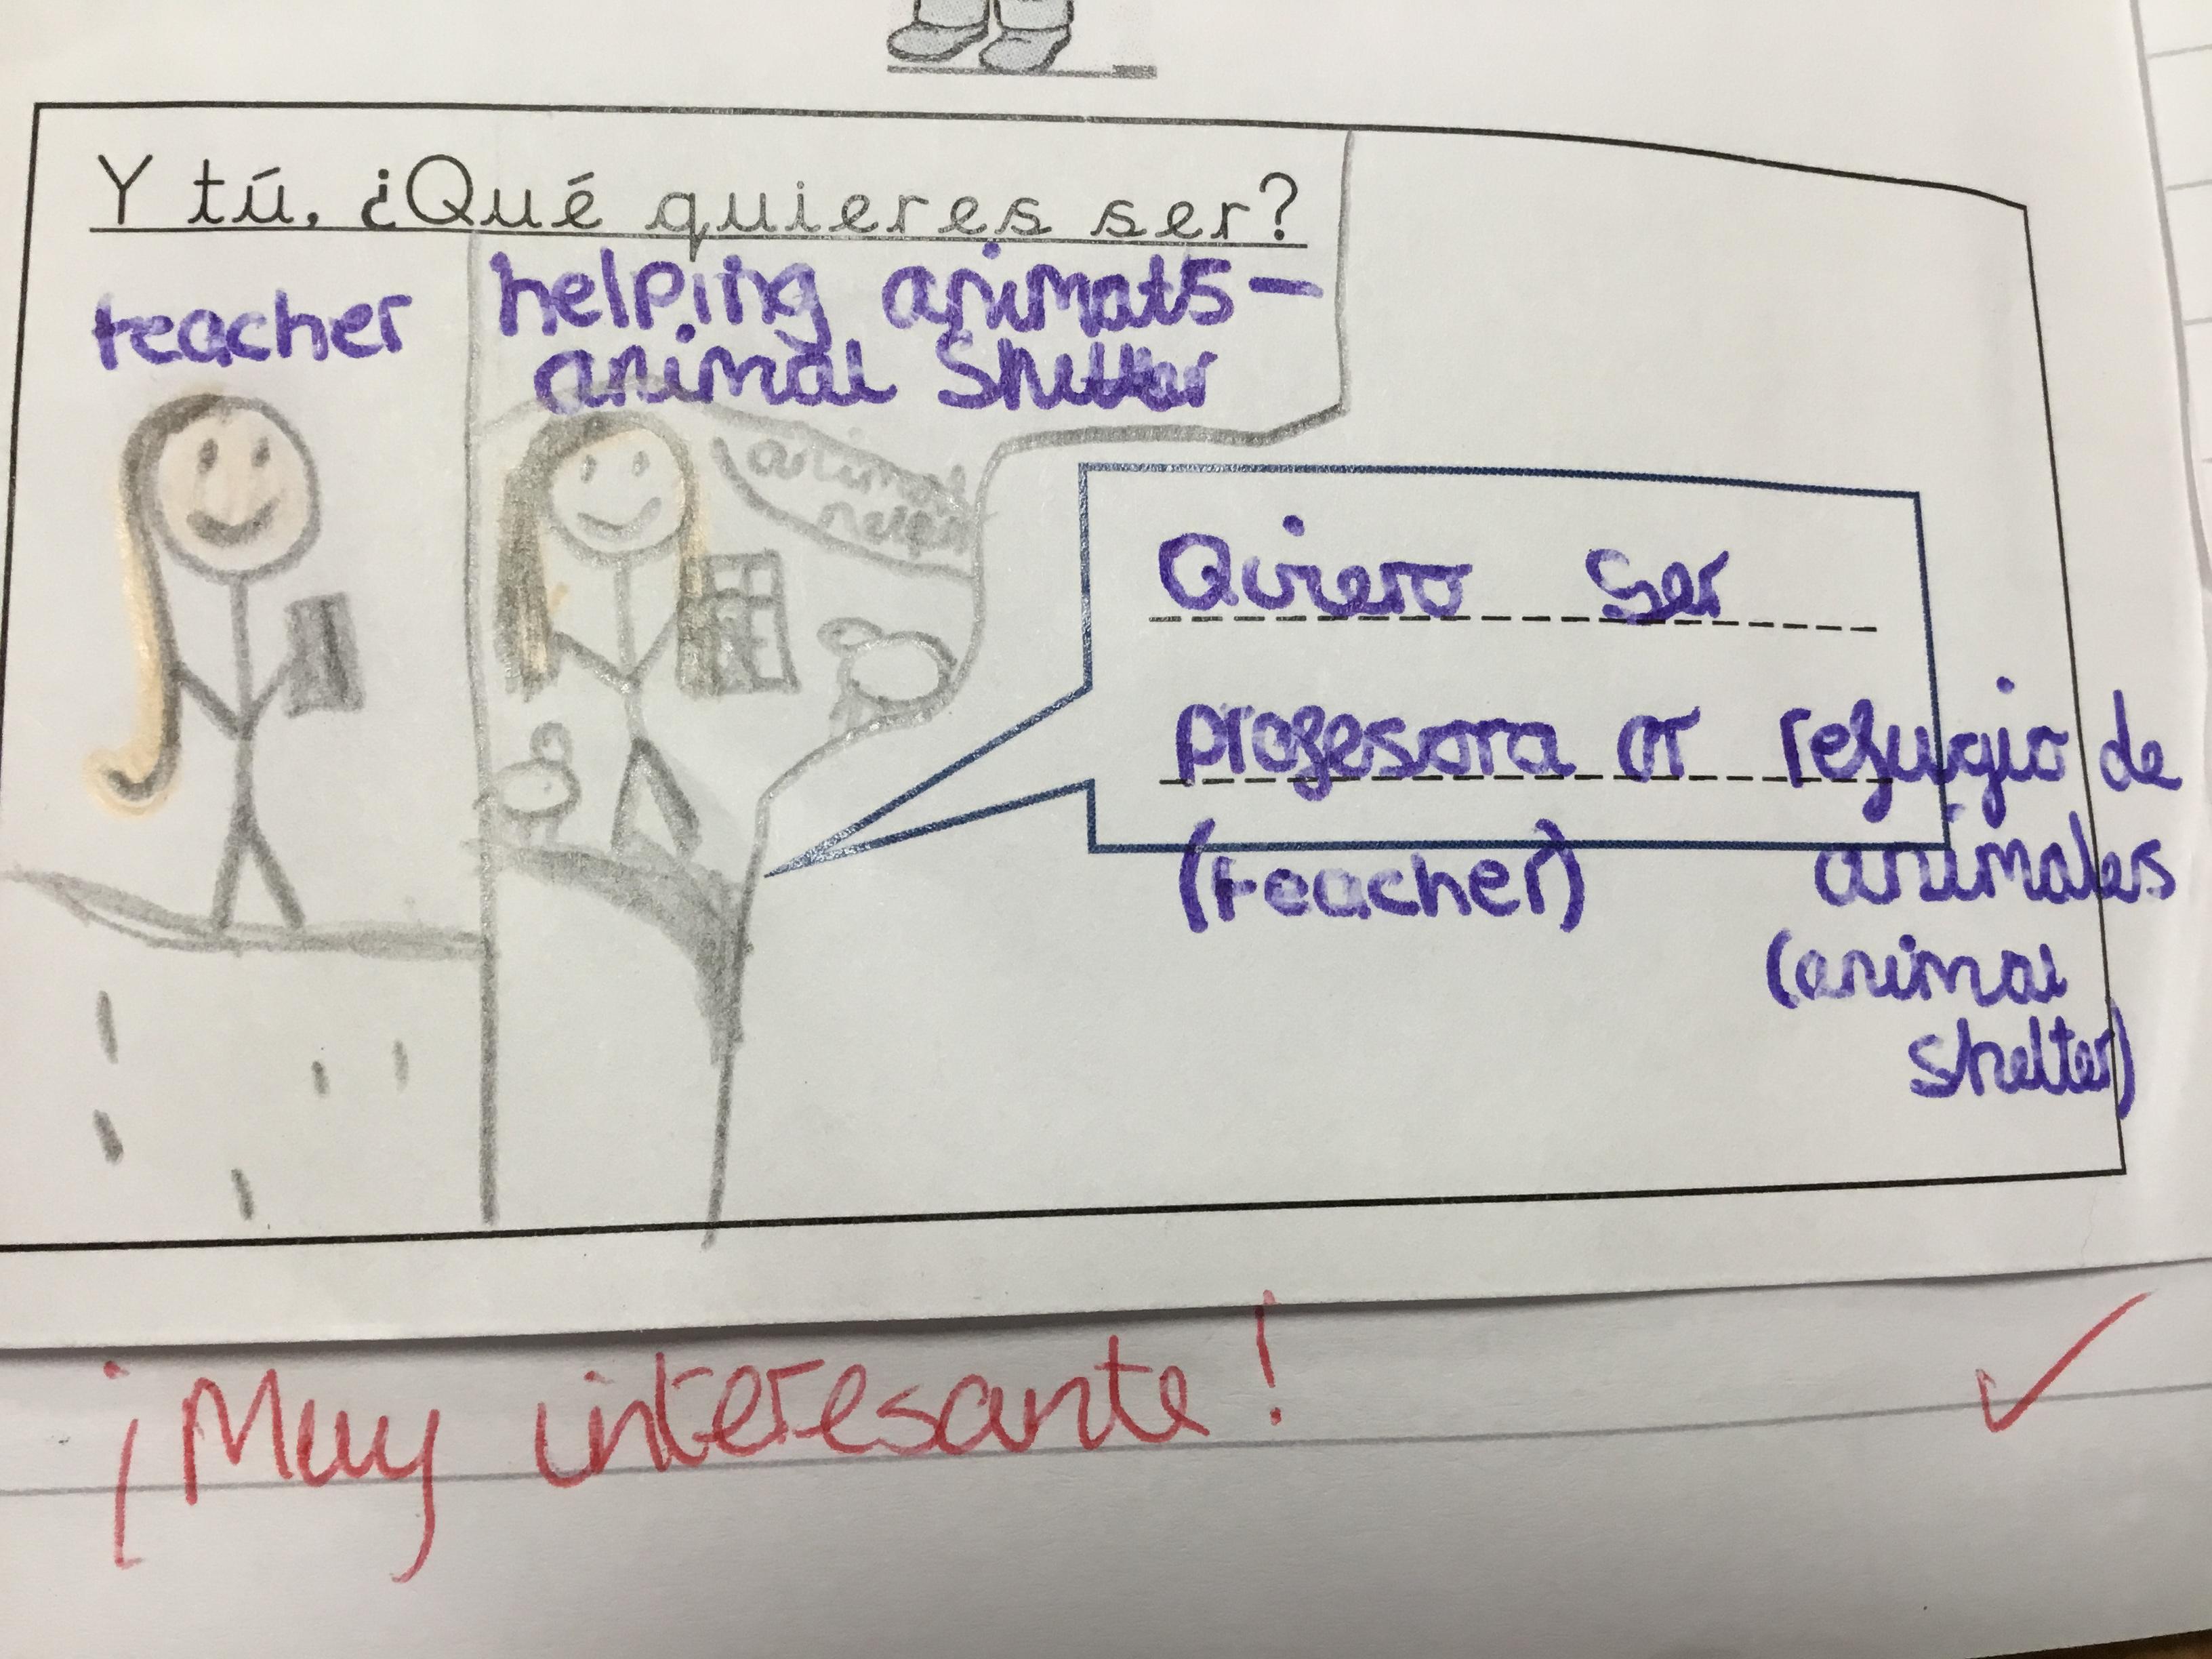 Y tú, ¿Qué quieres ser?
teacher
helping animals -
animal shelter
animal
Quiero ser
profesora or refugio de
animales
(teacher)
(animal
shelter)
¡Muy interesante!